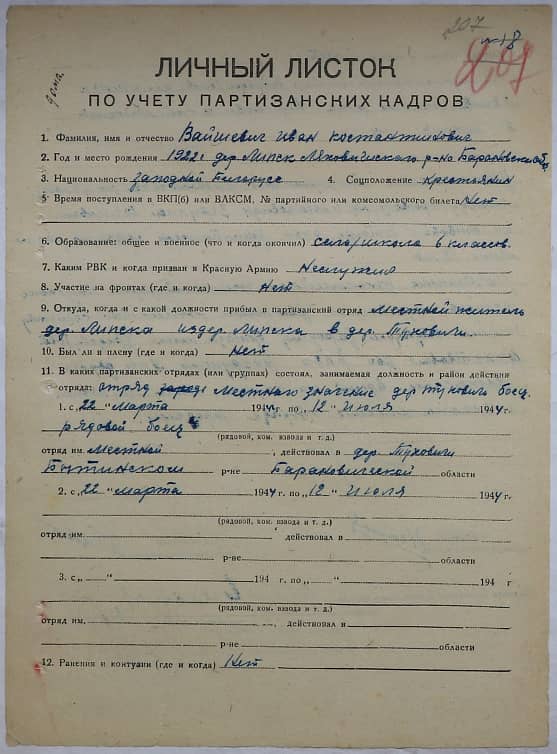 207
№18
207
ЛИЧНЫЙ ЛИСТОК
ПО УЧЕТУ ПАРТИЗАНСКИХ КАДРОВ
1. Фамилия, имя и отчество Вайшевич Иван Костантинович
2. Год и место рождения 1922г. дер. Липск Ляховичского р-на Барановской об
3. Национальность западной Белорусс 4. Соцположение Крестьянин
5. Время поступления в ВКП(б) или ВЛКСМ, № партийного или комсомольского билета Нет
6. Образование: общее и военное (что и когда окончил) сельшкола 6 классов.
7. Каким РВК и когда призван в Красную Армию Неслужил
8. Участие на фронтах (где и когда) Нет
9. Откуда, когда и с какой должности прибыл в партизанский отряд местней житель
дер. Липска из дер. Липска в дер. Туховичи.
10. Был ли и плену (где и когда) нет
11. В каких партизанских отрядах (или группах) состоял, занимаемая должность и район действия
отряда: отряд местного значение дер Туховичи боец.
1. с „22" марта 1944 г. по „12" Июля 1944 г.
рядовой боец
(рядовой, ком. взвода и т. д.)
отряд им. местней, действовал в дер. Туховичи
Бытинском р-не Барановичской области
2. с „22" марта 1944 г. по „12" Июля 1944 г.
(рядовой, ком. взвода и т. д.)
отряд им. , действовал в
р-не области
3. с „ " 194 г. по „ " 194 г
(рядовой, ком. взвода и т. д.)
отряд им. , действовал в
р-не области
12. Ранения и контузии (где и когда) Нет